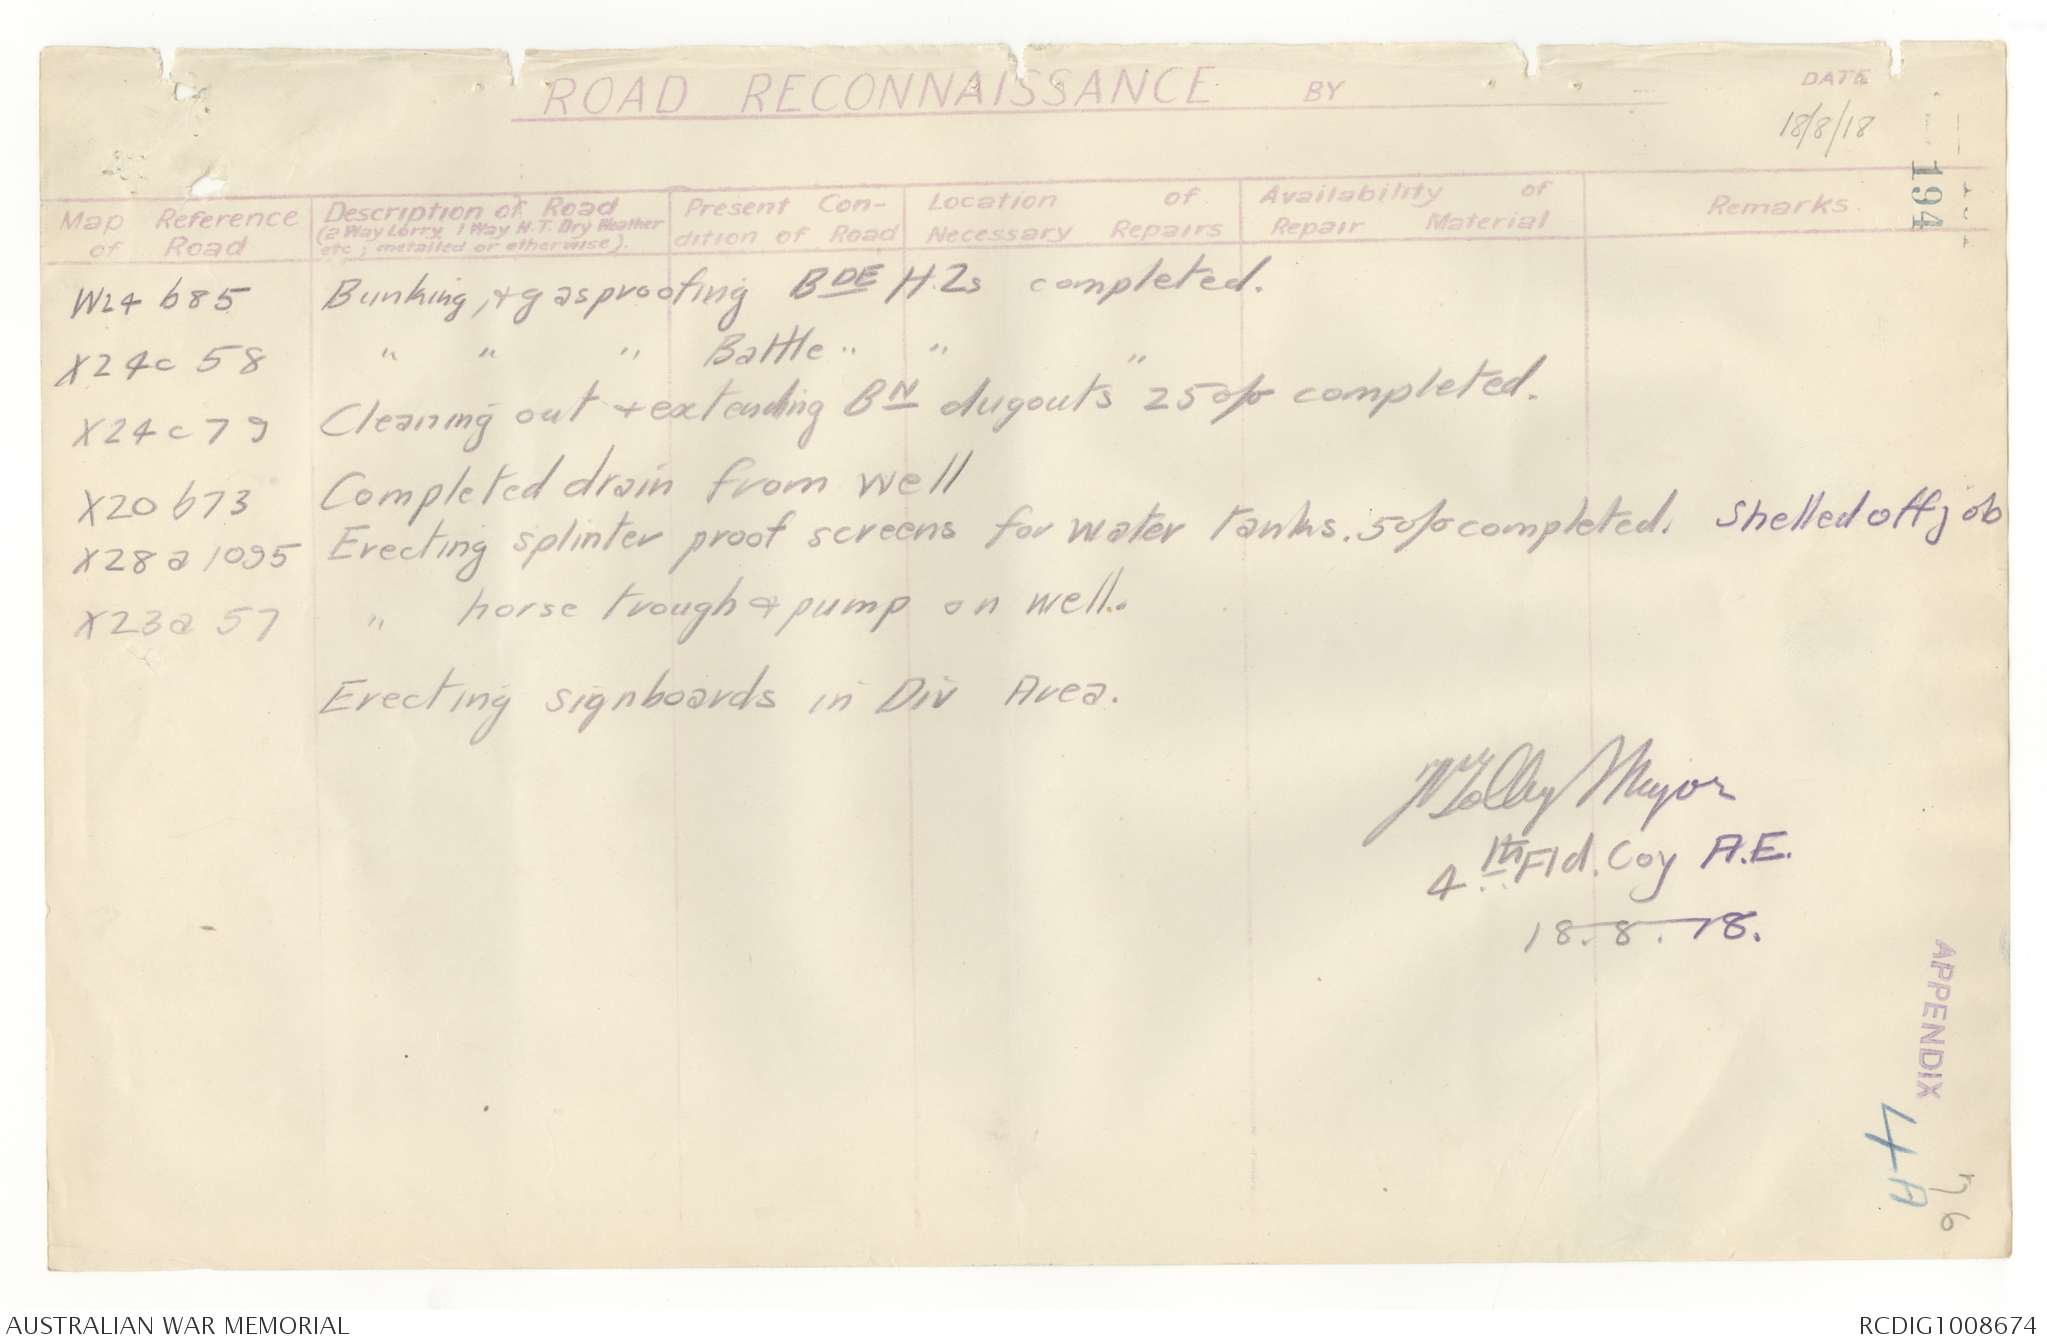 ROAD RECONNAISSANCE BY
DATE
18/8/18
194
Map Reference of Road
Description of Road (2 Way Lorry, 1 Way H.T. Dry Weather etc; metalled or otherwise).
Present Condition of Road
Location of Necessary Repairs
Availability of Repair Material
Remarks
W24 b85 Bunking, + gasproofing BDE H.Qs completed.
X24c 58 " " " Battle " " "
X24c79 Cleaning out + extending BN dugouts 25% completed.
X20 b73 Completed drain from well
X28a1095 Erecting splinter proof screens for water tanks. 50% completed. Shelled off job
X23a 57 " horse trough & pump on well.
Erecting signboards in Div Area.
Major
4th Fld. Coy A.E.
18.8.18.
APPENDIX
4A
76
AUSTRALIAN WAR MEMORIAL
RCDIG1008674